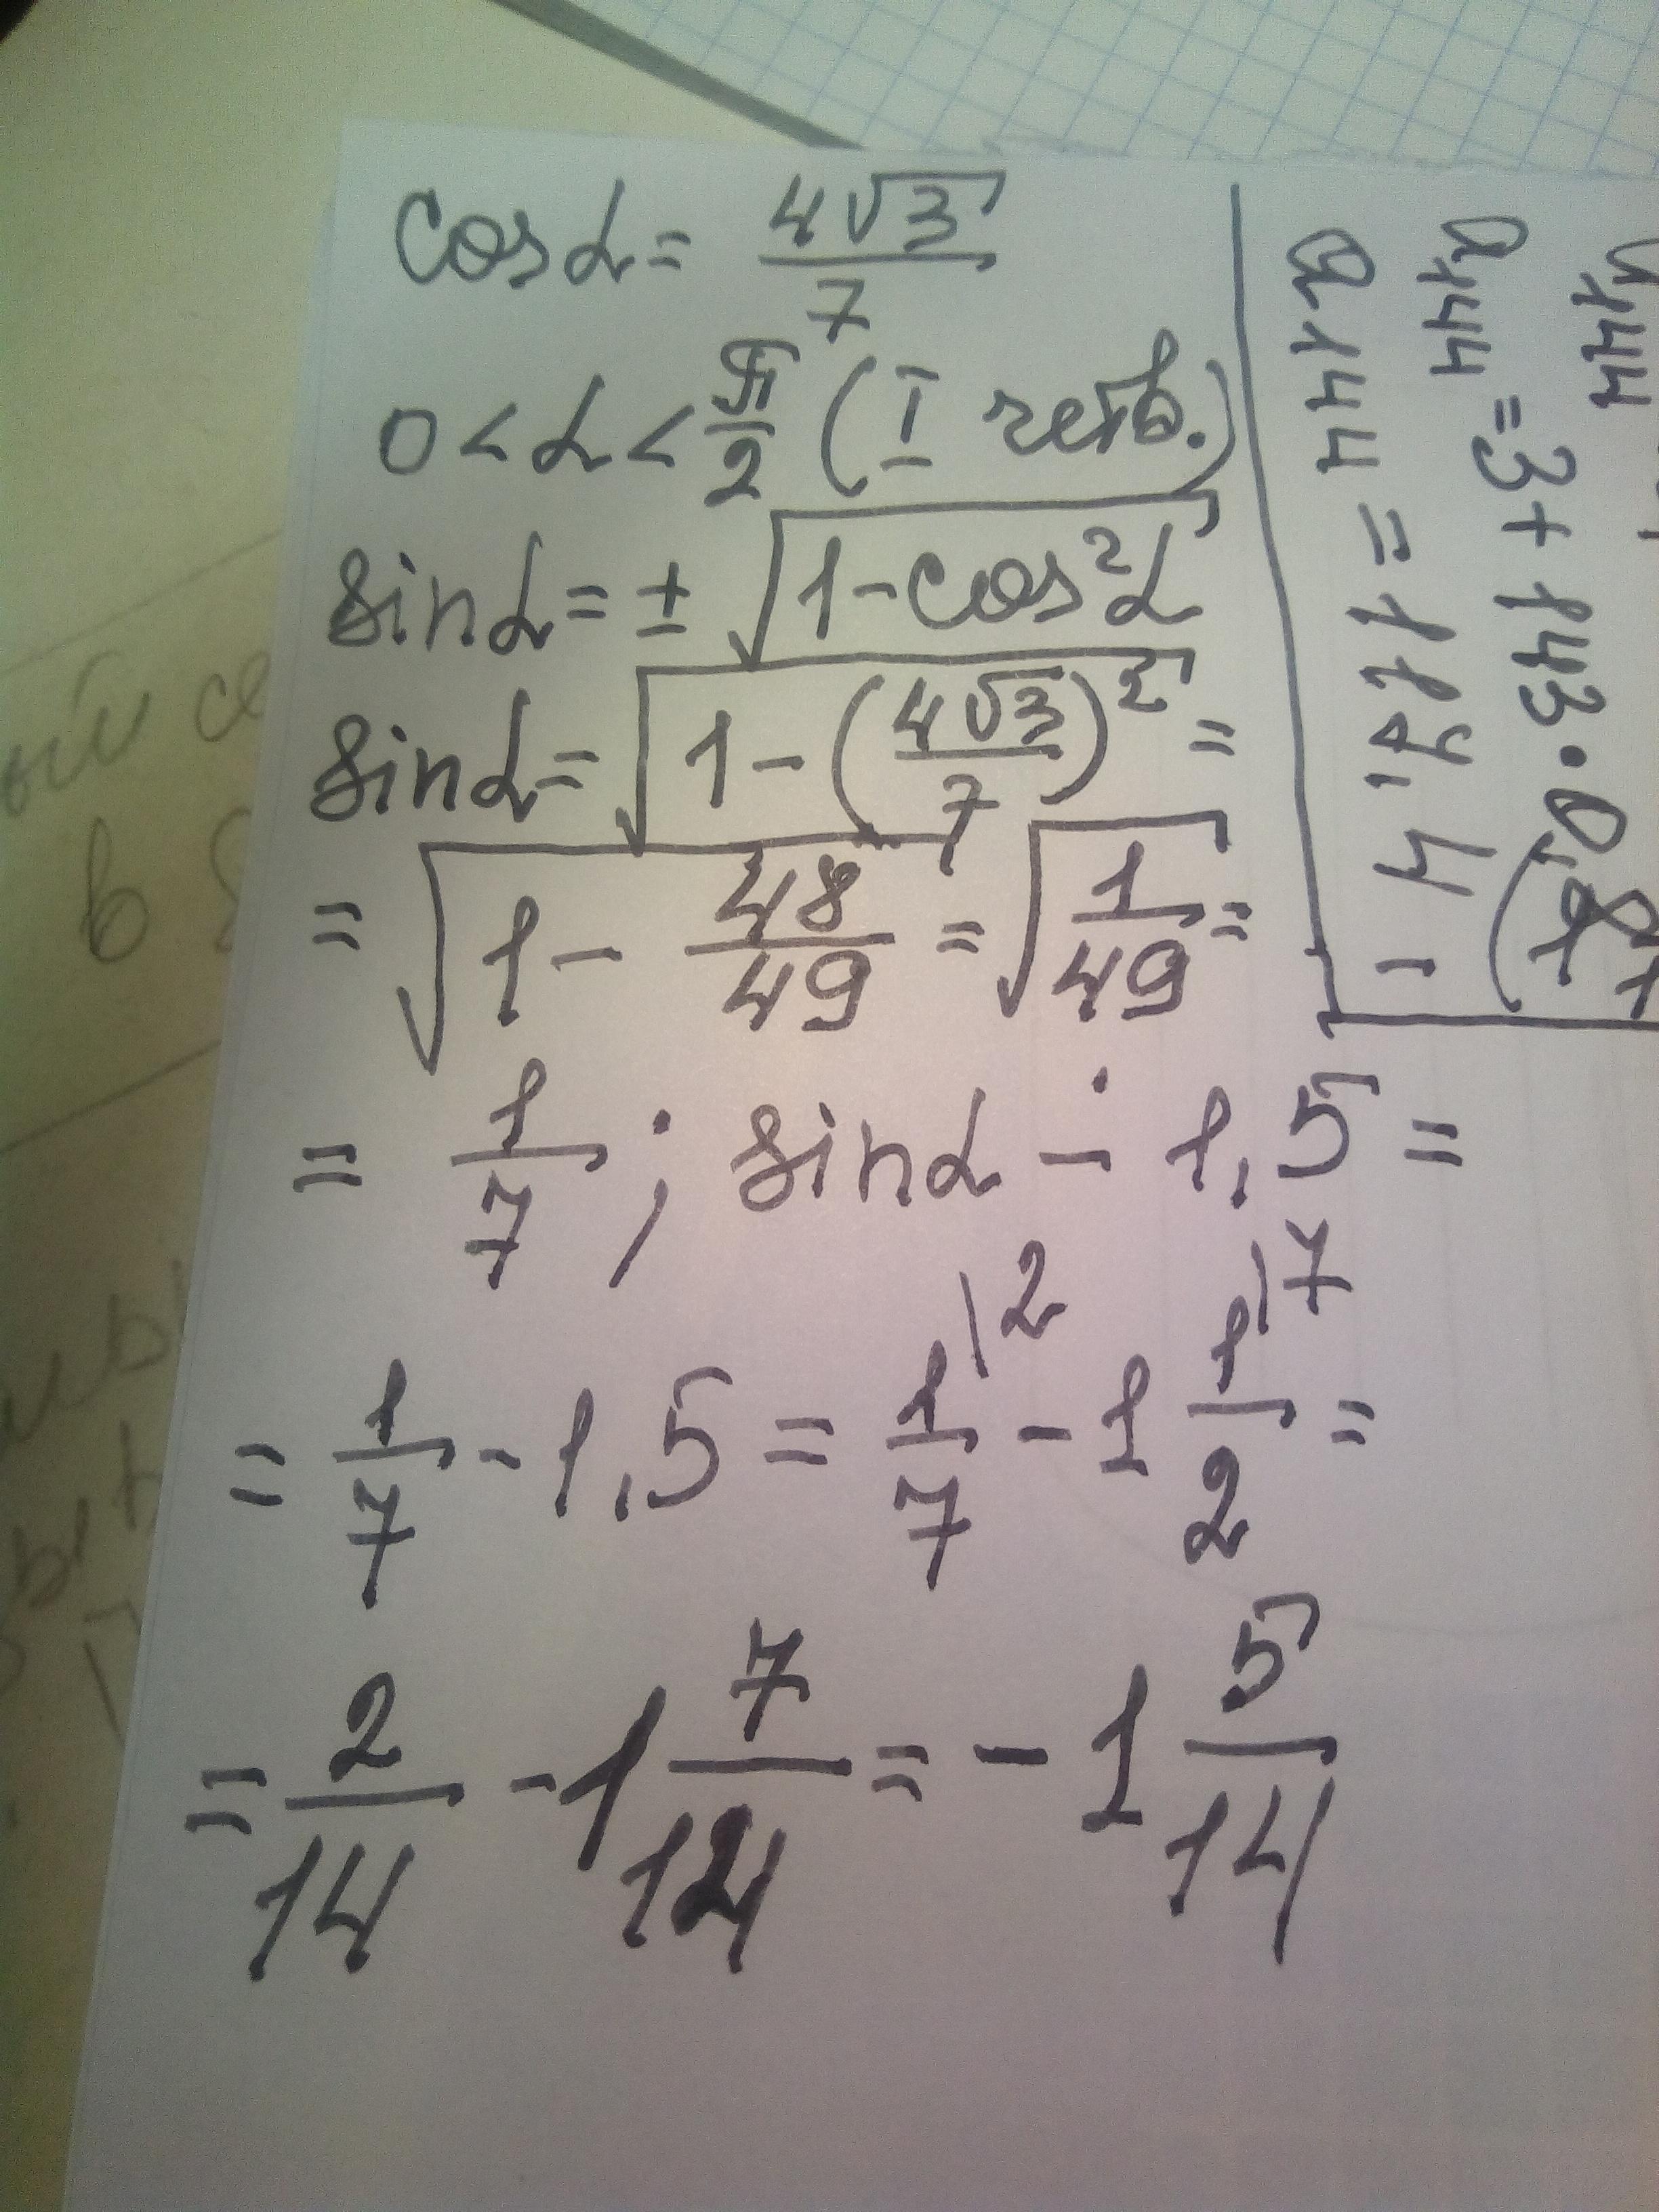 cos α = 4√3/7
0 < α < π/2 (I четв.)
sin α = ± √(1 - cos²α)
sin α = √(1 - (4√3/7)²) =
= √(1 - 48/49) = √(1/49) =
= 1/7 ; sin α - 1,5 =
= 1/7 - 1,5 = 1/7 \2 - 1 1/2 \7 =
= 2/14 - 1 7/14 = - 1 5/14
a₁₄₄
a₁₄₄ = 3 + 143 · 0,8
a₁₄₄ = 117,4
в